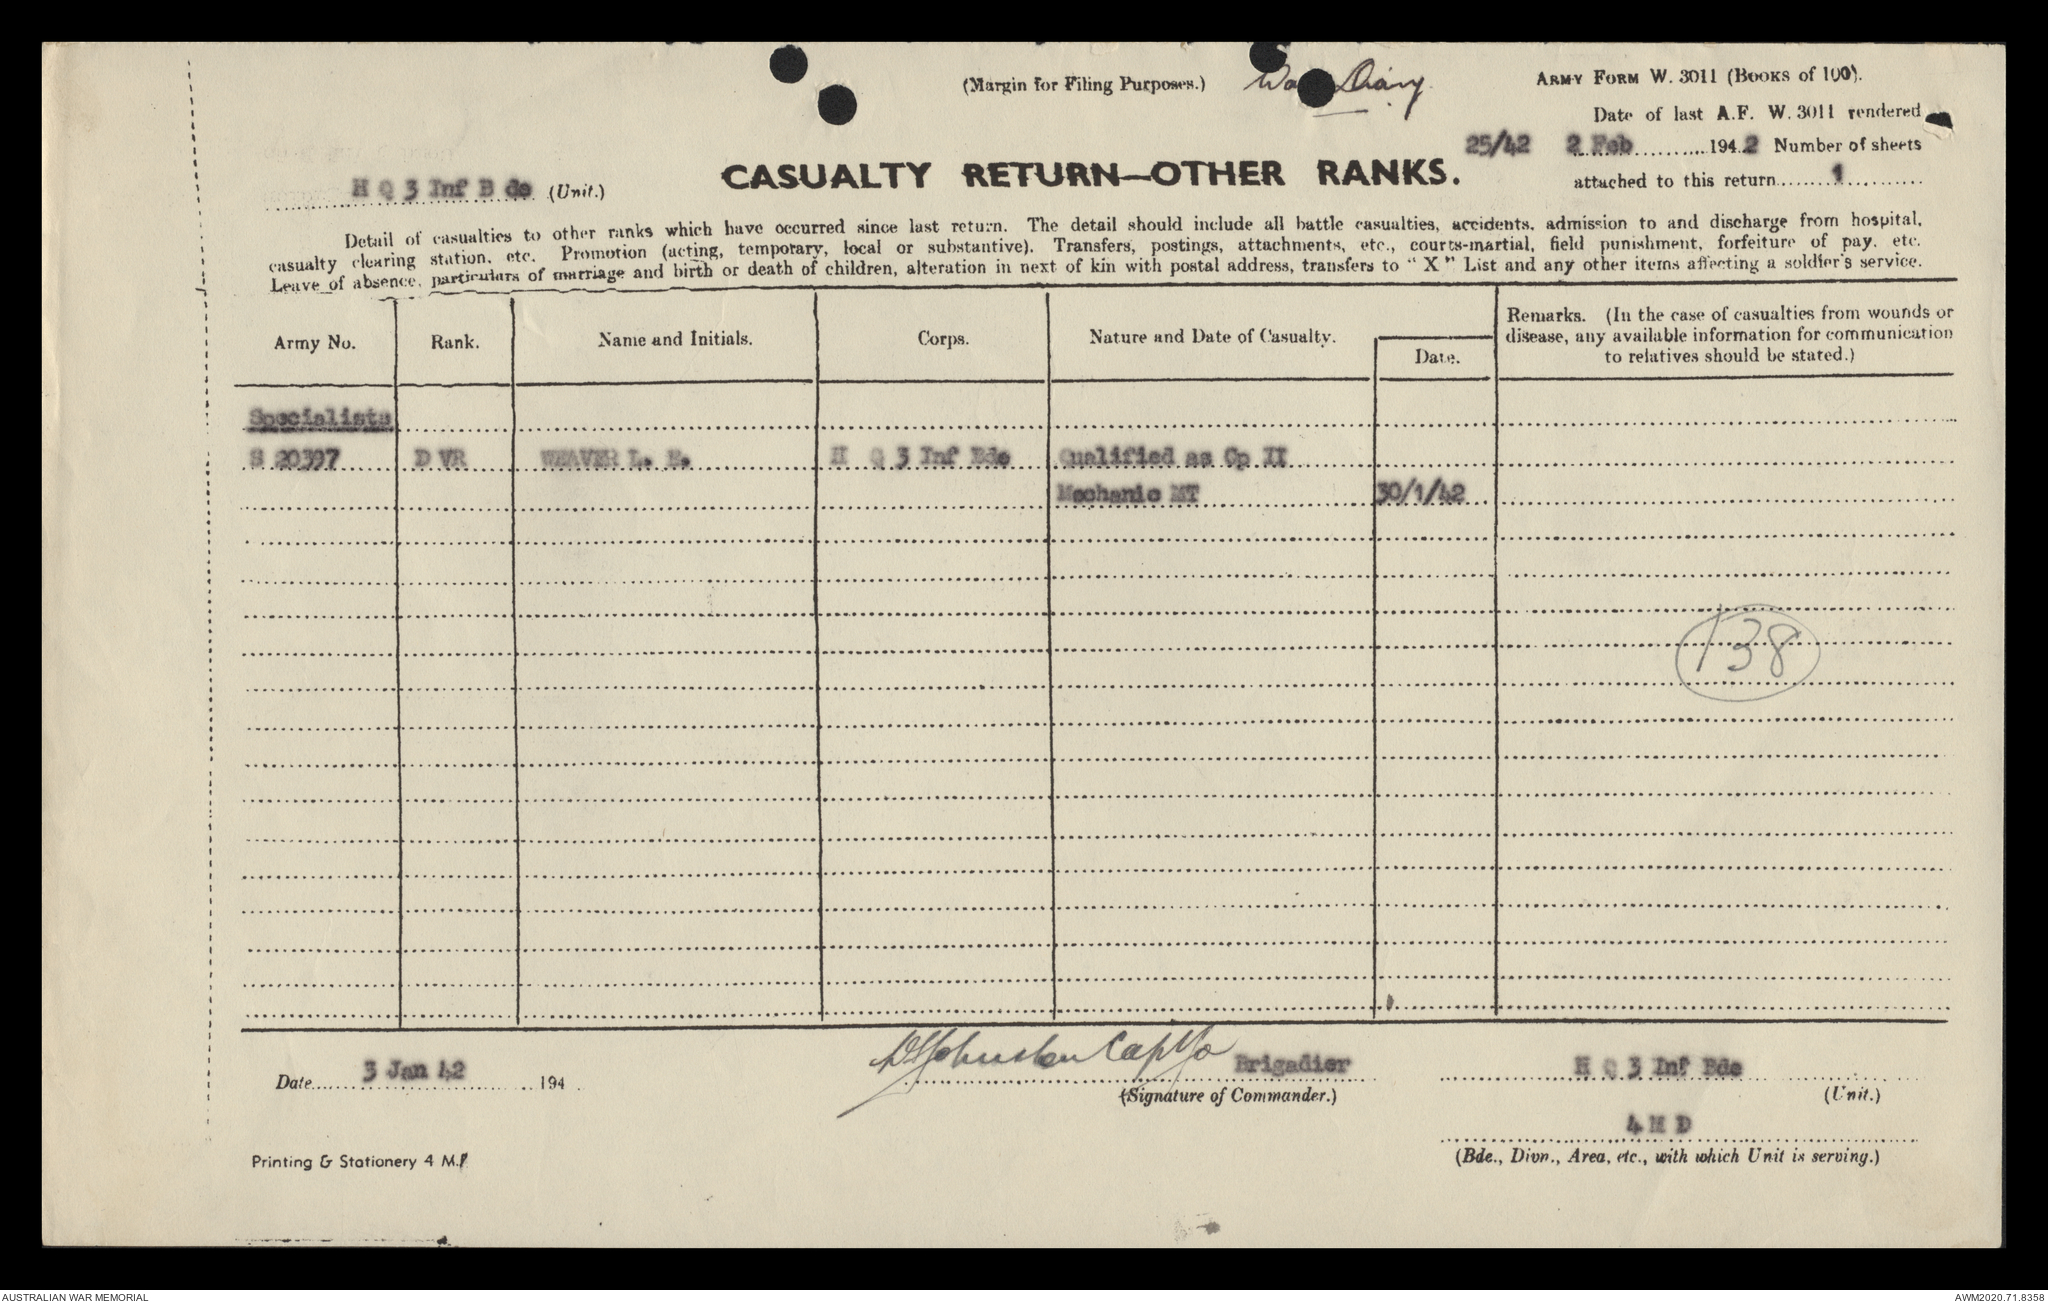 (Margin for Filing Purposes.)
War Diary
ARMY FORM W. 3011 (BOOKS of 100).
Date of last A.F. W. 3011 rendered
25/42 2 Feb 1942 Number of sheets
attached to this return 1
H Q 3 Inf B de (Unit.)
CASUALTY RETURN—OTHER RANKS.
Detail of casualties to other ranks which have occurred since last return. The detail should include all battle casualties, accidents, admission to and discharge from hospital,
casualty clearing station, etc. Promotion (acting, temporary, local or substantive). Transfers, postings, attachments, etc., courts-martial, field punishment, forfeiture of pay, etc.
Leave of absence, particulars of marriage and birth or death of children, alteration in next of kin with postal address, transfers to "X" List and any other items affecting a soldier's service.
Army No. Rank. Name and Initials. Corps. Nature and Date of Casualty. Date. Remarks. (In the case of casualties from wounds or
disease, any available information for communication
to relatives should be stated.)
Specialists
S 20397 D VR WEAVER L. E. H Q 3 Inf Bde Qualified as Gp II
Mechanic MT 30/1/42
138
Date 3 Jan 42 194
Johnston Capt Brigadier
(Signature of Commander.)
H Q 3 Inf Bde
(Unit.)
4 M D
(Bde., Divn., Area, etc., with which Unit is serving.)
Printing & Stationery 4 M.
AUSTRALIAN WAR MEMORIAL
AWM2020.71.8358